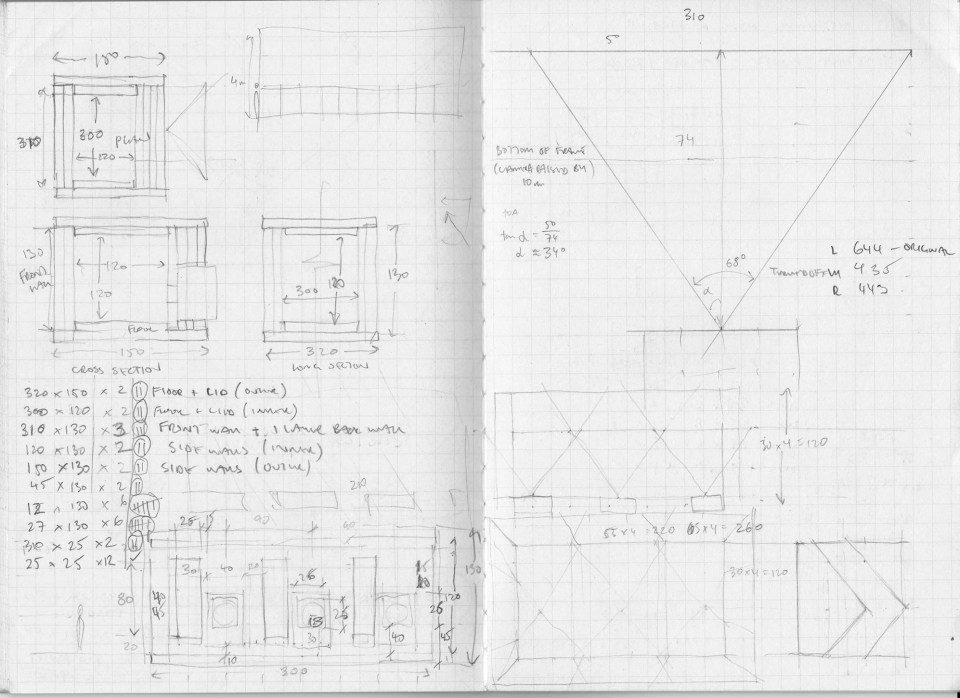 150
300
PLAN
120
4m
130
FRONT
WALL
120
120
FLOOR
150
CROSS SECTION
300
120
130
320
LONG SECTION
320 × 150 × 2 FLOOR + LID (OUTER)
300 × 120 × 2 FLOOR + LID (INNER)
310 × 130 × 3 FRONT WALL + 1 LAYER BACK WALL
120 × 130 × 2 SIDE WALLS (INNER)
150 × 130 × 2 SIDE WALLS (OUTER)
45 × 130 × 2
12 × 130 × 6
27 × 130 × 6
310 × 25 × 2
25 × 25 × 12 ✓
210
25
90
60
30
40
20
25
80
25
13
30
40
25
120
150
45
20
10
300
310
50
74
BOTTOM OF FRAME
(CAMERA RAISED BY
10m
tan α = 50/74
α ≈ 34°
68°
α
L 644 – ORIGINAL
M 435
R 443
30 × 4 = 120
55 × 4 = 220 65 × 4 = 260
30 × 4 = 120